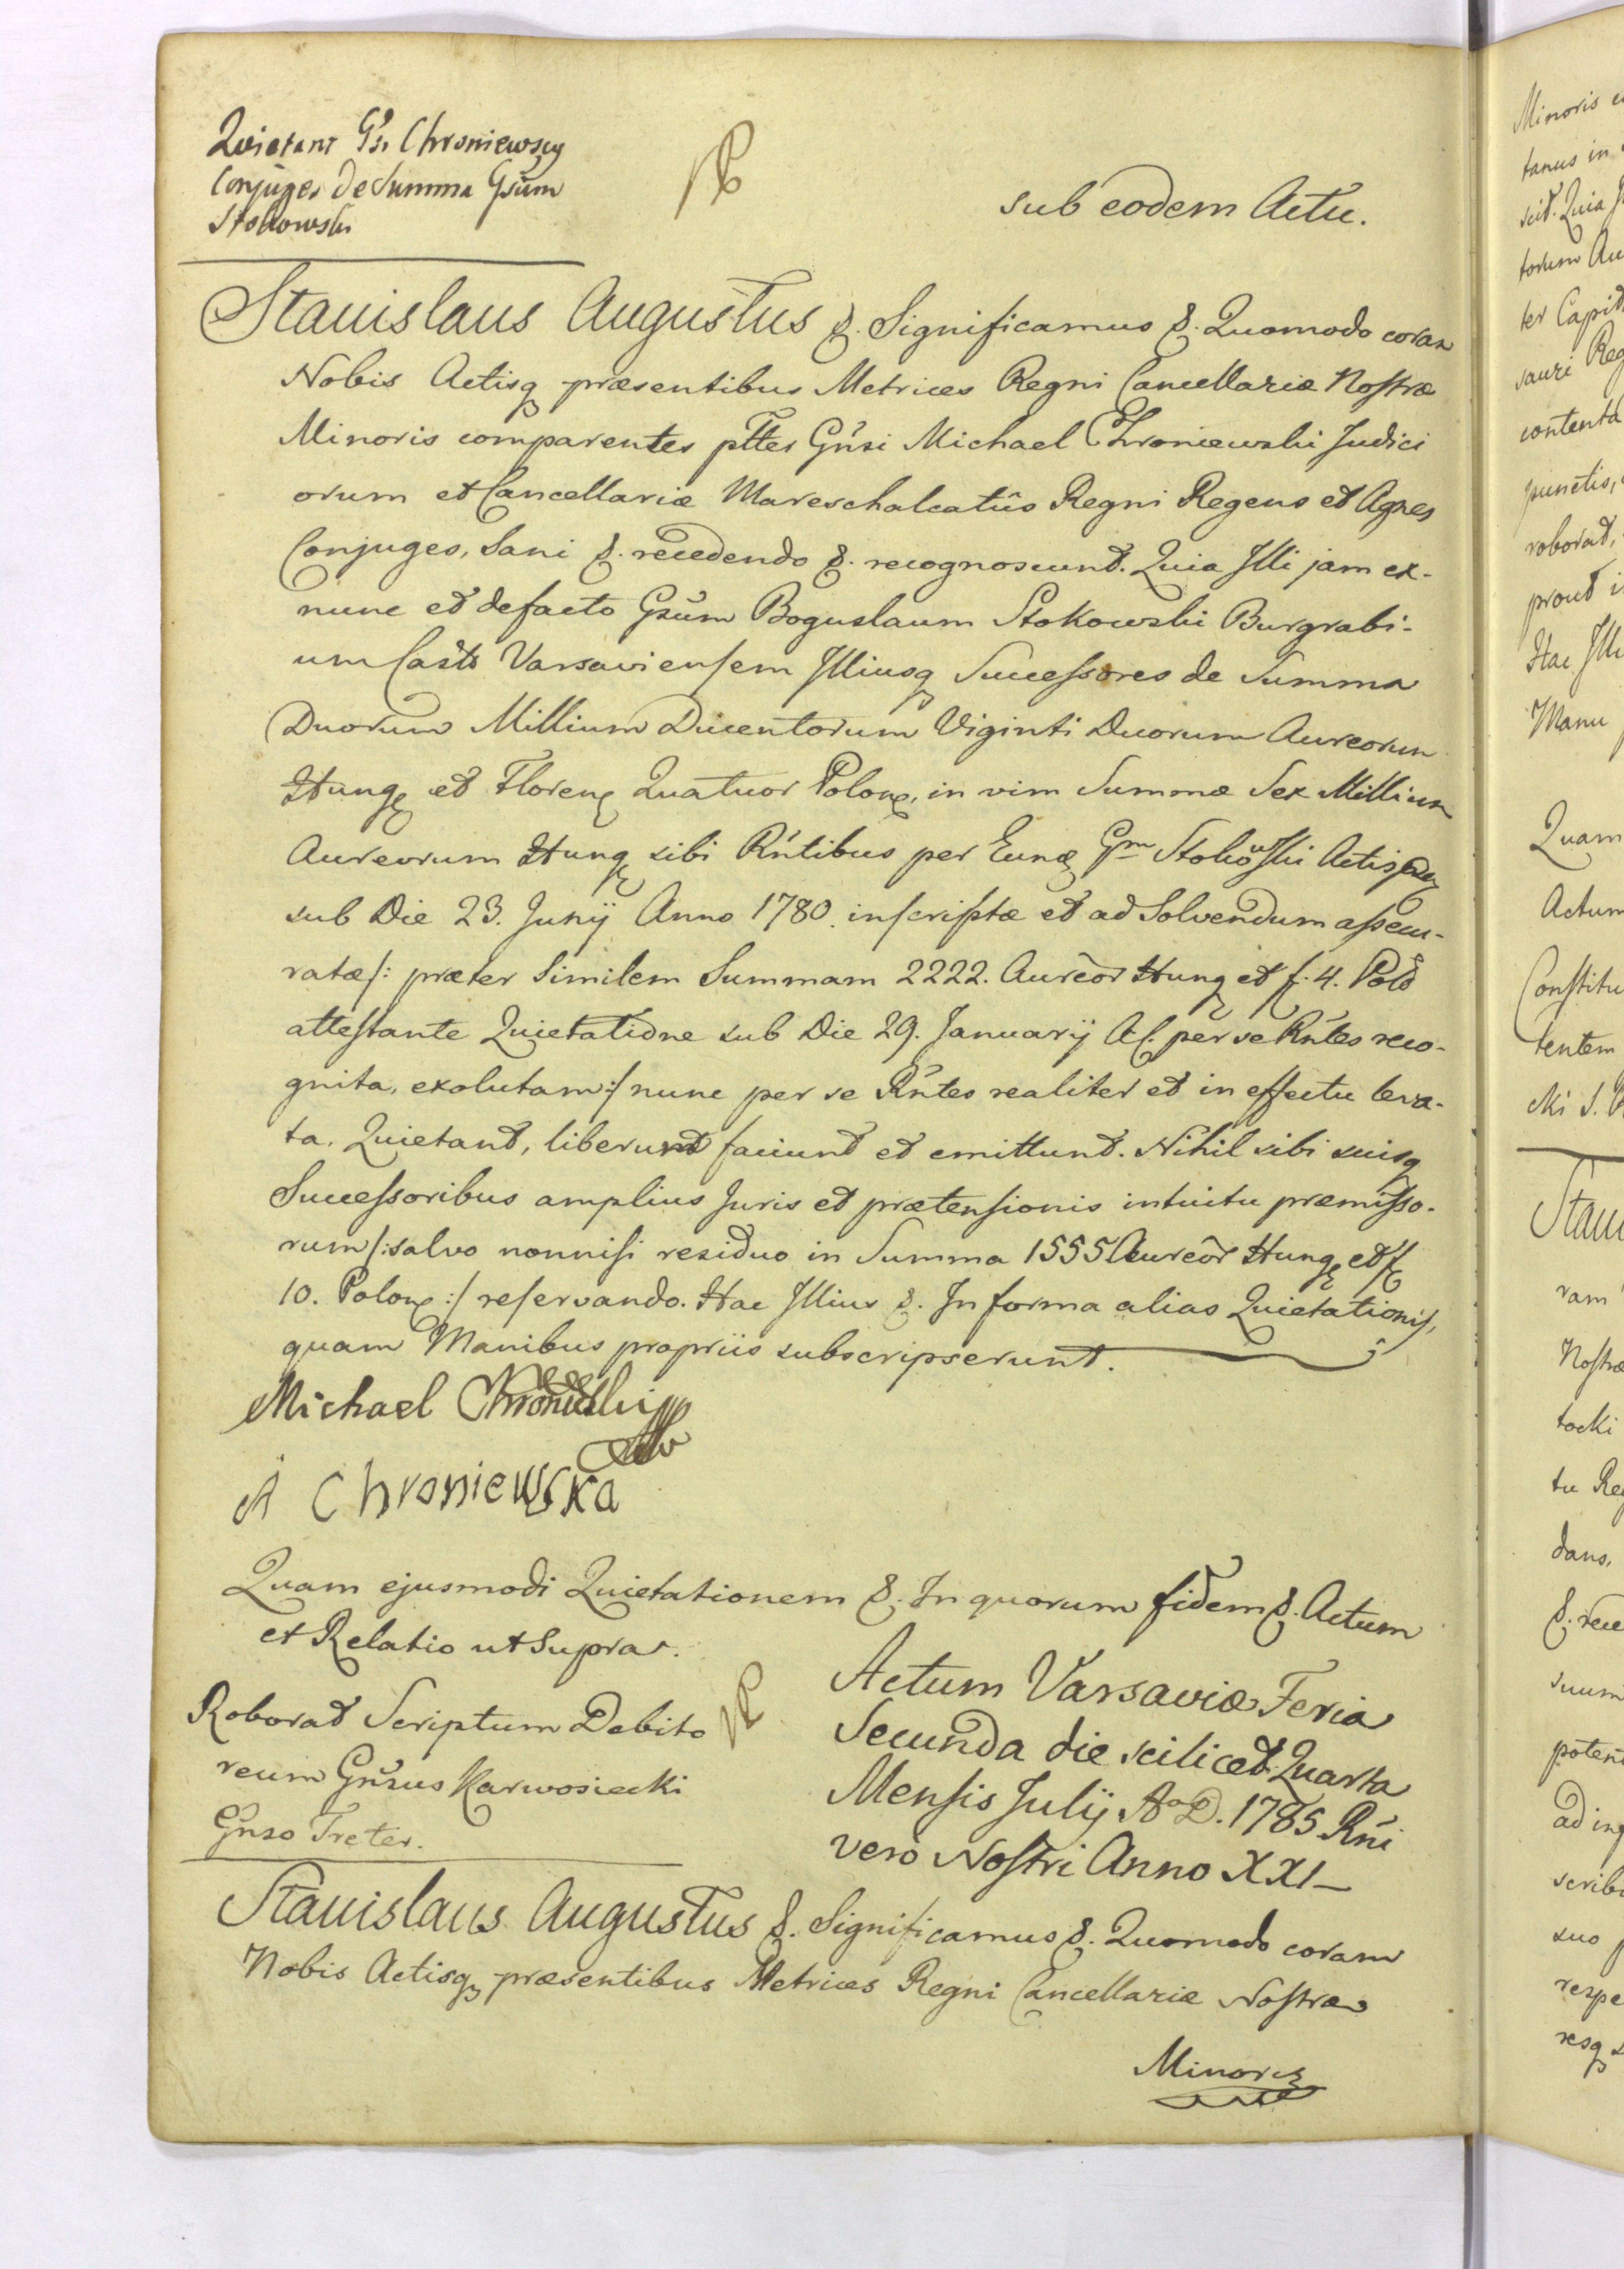 Quietant Gsi Chroniewscy
Conjuges de Summa Gsum
Stokowski
sub eodem Actu.
Stanislaus Augustus &. Significamus &. Quomodo coram
Nobis Actisq præsentibus Metrices Regni Cancellariæ Nostræ
Minoris comparentes pltes Gnsi Michael Chroniewski Judici
orum et Cancellariæ Mareschalcatûs Regni Regens et Agnes
Conjuges, Sani &. recedendo &. recognoscunt. Quia Illi jam ex-
nunc et defacto Gsum Boguslaum Stokowski Burgrabi-
um Casts Varsaviensem Illiusq Successores de Summa
Duorum Millium Ducentorum Viginti Duorum Aureorum
Hung et Floren Quatuor Polon, in vim Summæ Sex Millium
Aureorum Hung sibi Rntibus per Eund Gm Stokowski Actis
sub Die 23. Junij Anno 1780. inscriptæ et ad Solvendum assecu-
ratæ/: præter Similem Summam 2222. Aureor Hung et f. 4. Polo
attestante Quietatione sub Die 29. Januarij A C. per se Rntes reco-
gnita, exolutam :/ nunc per se Rntes realiter et in effectu leva-
ta. Quietant, liberunt faciunt et emittunt. Nihil sibi suisq
Successoribus amplius Juris et prætensionis intuitu præmisso-
rum /: salvo nonnisi residuo in Summa 1555 Aureor Hung et f
10. Polon :/ reservando. Hac Illius &. In forma alias Quietationis,
quam Manibus propriis subscripserunt.
Michael Chroniewski
A Chroniewska
Quam ejusmodi Quietationem &. In quorum fidem &. Actum
et Relatio ut Supra.
Roborat Scriptum Debito
reum Gnsus Karwosiecki
Gnso Treter.
Actum Varsaviæ Feria
Secunda die scilicet Quarta
Mensis Julij Ao D. 1785 Rni
vero Nostri Anno XXI
Stanislaus Augustus &. Significamus &. Quomodo coram
Nobis Actisq præsentibus Metrices Regni Cancellariæ Nostræ
Minoris
Minoris
tanus in
scit. Quia
torum Au
ter Capit
sauri Reg
contenta
punctis,
roborat,
prout
Hac Illi
Manu
Quam
Actum
Constitu
tentem
cki S.
Stani
ram
Nostræ
tocki
tu Reg
dans,
&. rece
suum
poten
ad in
scrib
suo
respe
resq